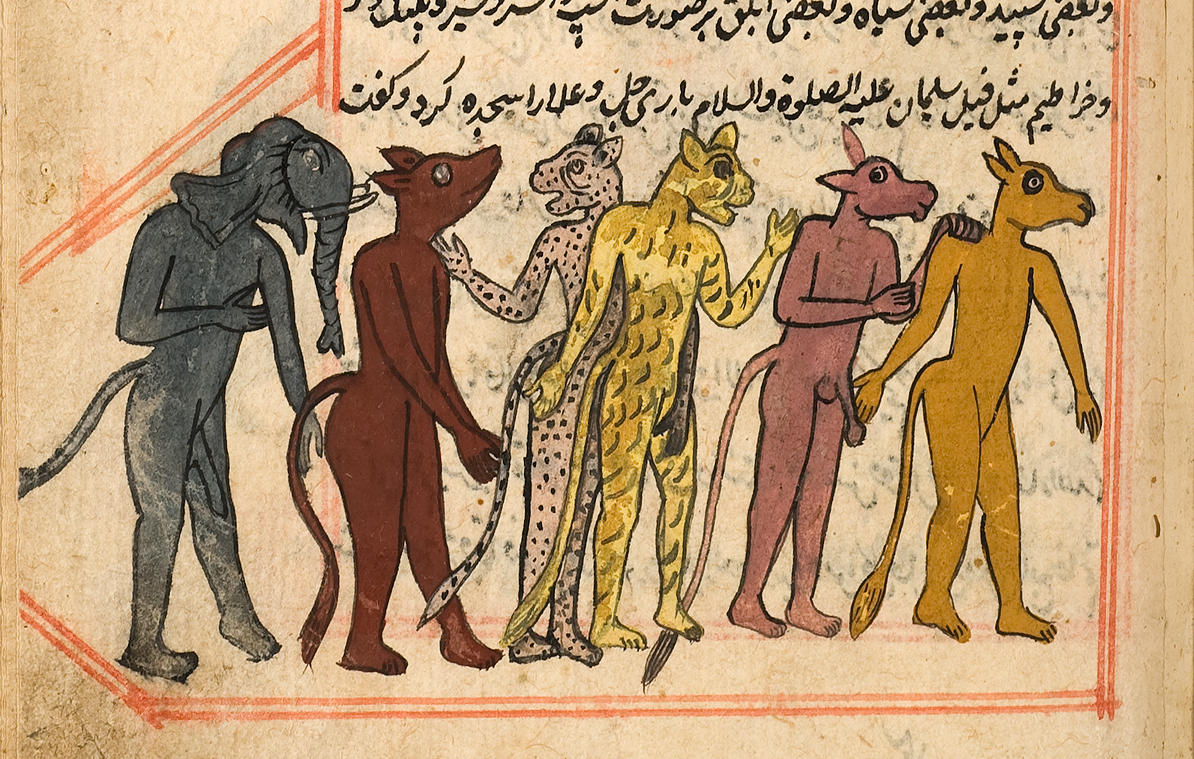 وبعضی سپید وبعضی سیاه وبعضی ابلق بر صورت اسپ استر و شیر و پلنک و
وخراطیم مثل فیل سلیمان علیه الصلوة والسلام باری جل وعلا را سجده کرد و کفت